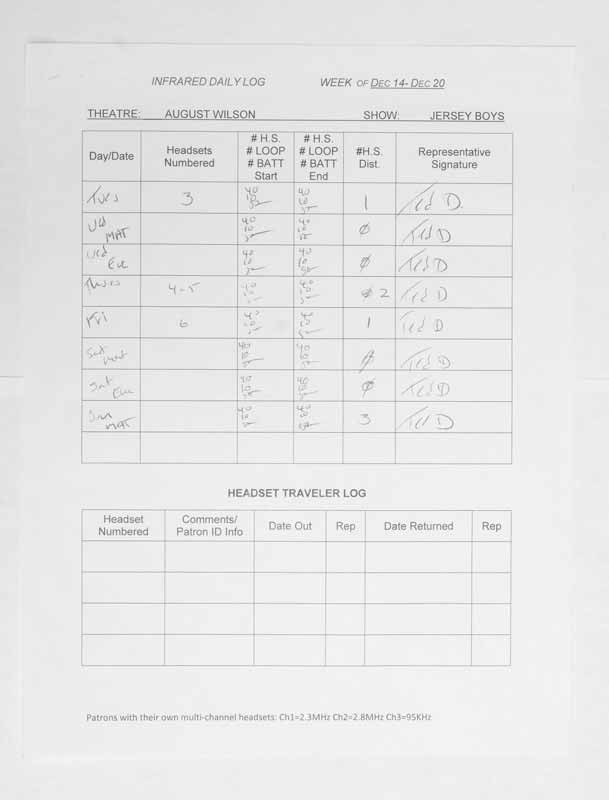 INFRARED DAILY LOG WEEK OF DEC 14- DEC 20
THEATRE: AUGUST WILSON SHOW: JERSEY BOYS
Day/Date
Headsets
Numbered
# H.S.
# LOOP
# BATT
Start
# H.S.
# LOOP
# BATT
End
#H.S.
Dist.
Representative
Signature
Tues 3 40 10 40 10 1 Ted D.
Wed MAT 40 10 40 10 Ø Ted D
Wed Eve 40 10 40 10 Ø Ted D
Thurs 4-5 40 10 40 10 2 Ted D
Fri 6 40 10 40 10 1 Ted D
Sat Mat 40 10 40 10 Ø Ted D
Sat Eve 40 10 40 10 Ø Ted D
Sun MAT 40 10 40 10 3 Ted D
HEADSET TRAVELER LOG
Headset
Numbered
Comments/
Patron ID Info
Date Out
Rep
Date Returned
Rep
Patrons with their own multi-channel headsets: Ch1=2.3MHz Ch2=2.8MHz Ch3=95KHz